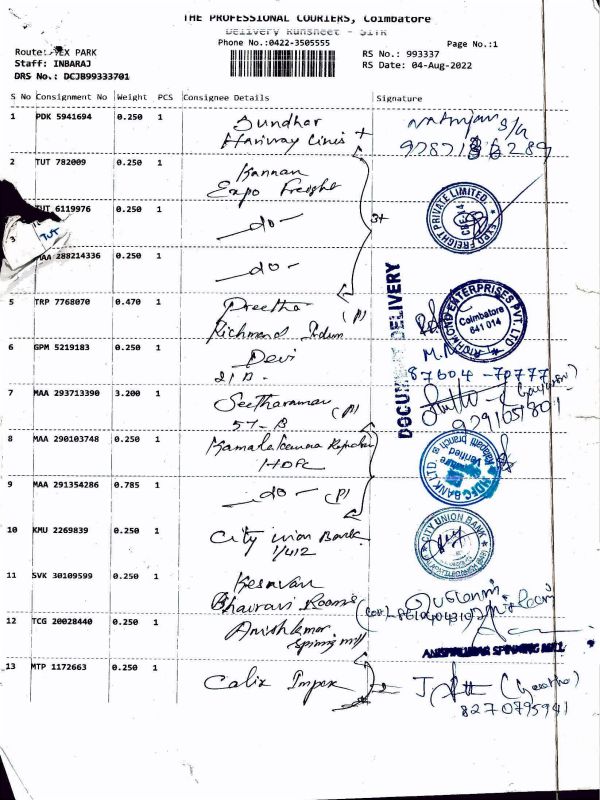 THE PROFESSIONAL COURIERS, Coimbatore
Delivery Runsheet - SITR
Phone No.:0422-3505555
Page No.:1
Route: TEX PARK
RS No.: 993337
Staff: INBARAJ
RS Date: 04-Aug-2022
DRS No.: DCJB99333701
S No Consignment No Weight PCS Consignee Details Signature
1 PDK 5941694 0.250 1 Sundhar
2 TUT 782009 0.250 1 Kannan
Expo Freight
EXPO FREIGHT PRIVATE LIMITED
TUT 6119976 0.250 1 -do-
3
TUT
MAA 288214336 0.250 1 -do-
3+
DOCUMENT DELIVERY
5 TRP 7768070 0.470 1 Preetha (P)
Richmond
RICHMOND ENTERPRISES PVT. LTD
Coimbatore
641 014
6 GPM 5219183 0.250 1 Devi
21 B.
87604-70777
7 MAA 293713390 3.200 1 Seetharaman (P)
57-B
9291051801
8 MAA 290103748 0.250 1
HDFC
HDFC BANK LTD
Verified
9 MAA 291354286 0.785 1 -do- (P)
10 KMU 2269839 0.250 1 City Union Bank
1/412
CITY UNION BANK
11 SVK 30109599 0.250 1 Kesavan
Bhairavi Rooms
12 TCG 20028440 0.250 1 Anishkumar
Spinning Mill
SPINNING MILL
13 MTP 1172663 0.250 1 Calix Impex
8270795941